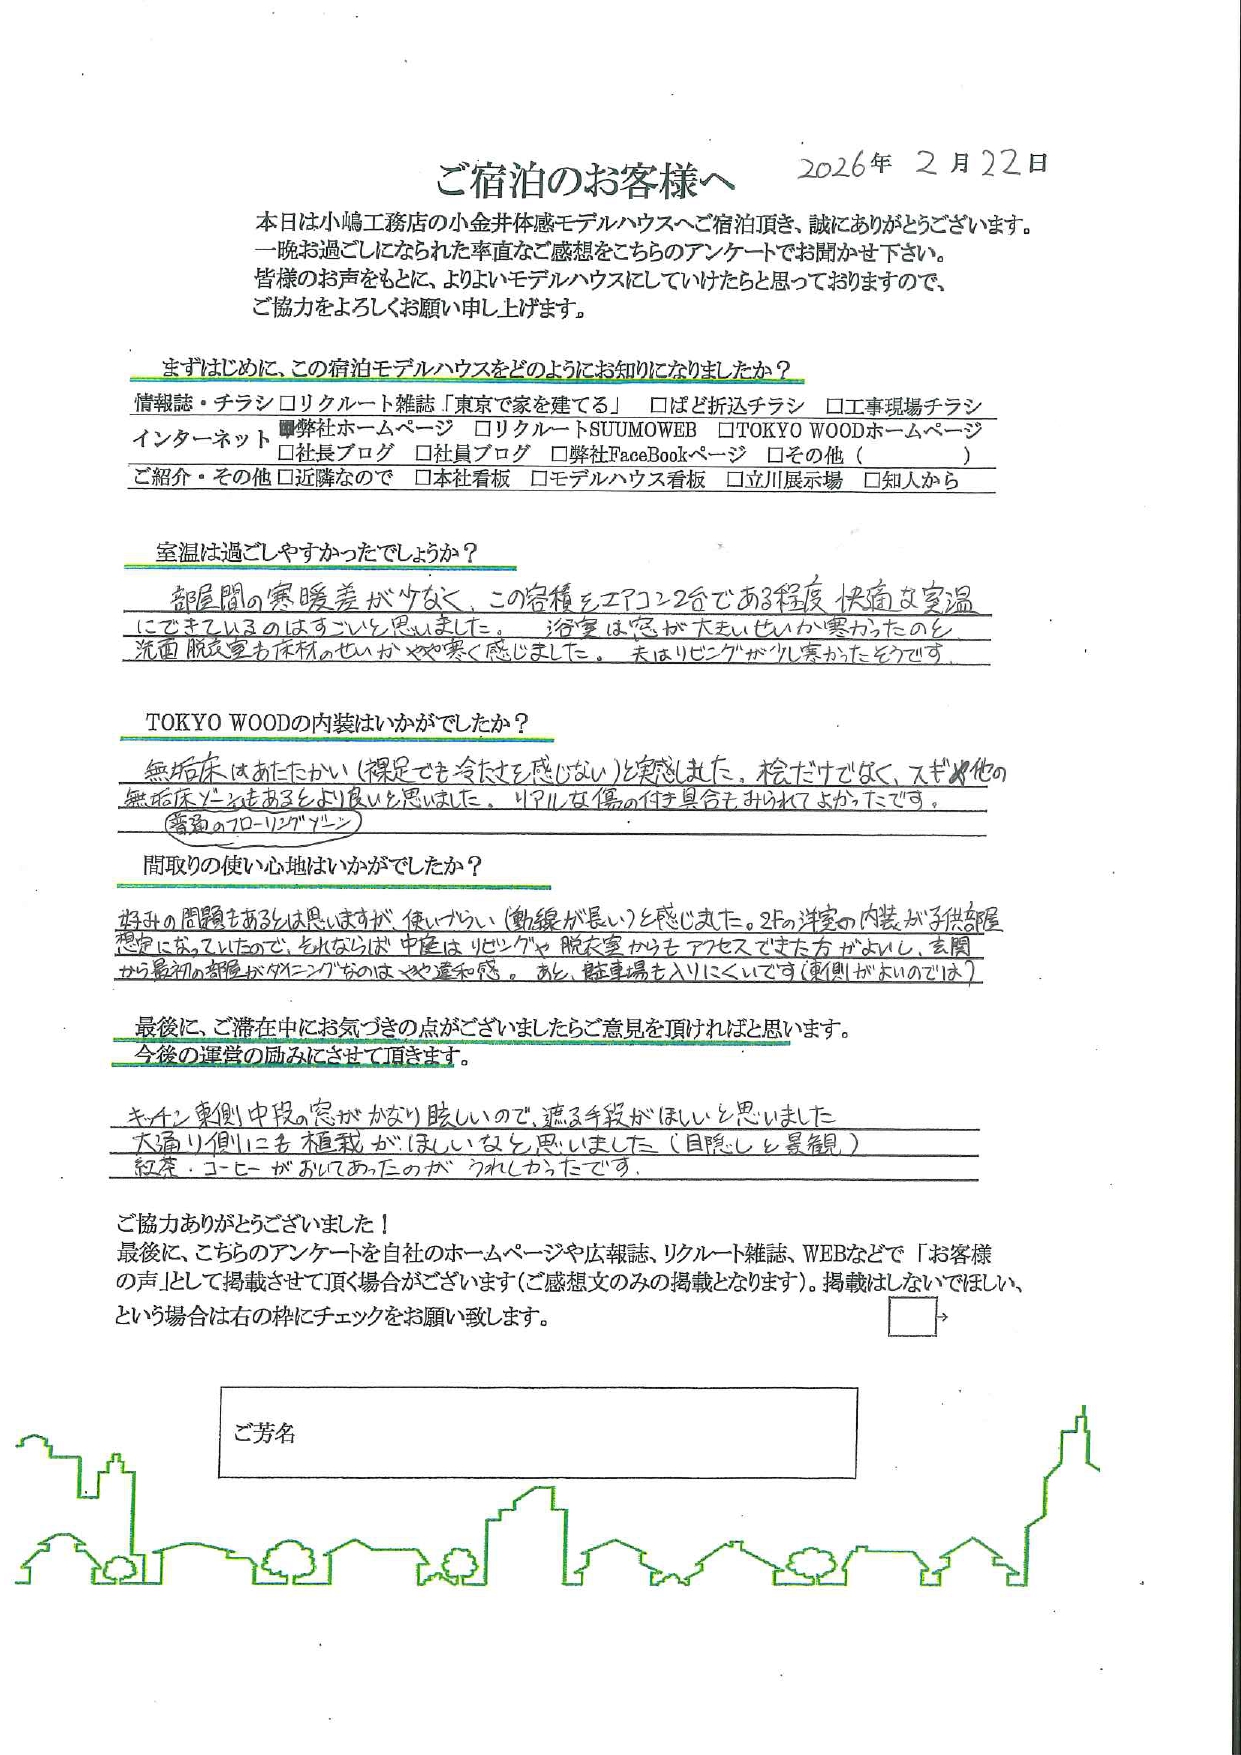 2026年 2月22日
ご宿泊のお客様へ
本日は小嶋工務店の小金井体感モデルハウスへご宿泊頂き、誠にありがとうございます。
一晩お過ごしになられた率直なご感想をこちらのアンケートでお聞かせ下さい。
皆様のお声をもとに、よりよいモデルハウスにしていけたらと思っておりますので、
ご協力をよろしくお願い申し上げます。
まずはじめに、この宿泊モデルハウスをどのようにお知りになりましたか？
情報誌・チラシ □リクルート雑誌「東京で家を建てる」 □ぱど折込チラシ □工事現場チラシ
インターネット ■弊社ホームページ □リクルートSUUMOWEB □TOKYO WOODホームページ
□社長ブログ □社員ブログ □弊社FaceBookページ □その他（ ）
ご紹介・その他 □近隣なので □本社看板 □モデルハウス看板 □立川展示場 □知人から
室温は過ごしやすかったでしょうか？
部屋間の寒暖差が少なく、この容積をエアコン2台である程度快適な室温
にできているのはすごいと思いました。 浴室は窓が大きいせいか寒かったのと
洗面脱衣室も床材のせいかやや寒く感じました。 夫はリビングが少し寒かったそうです
TOKYO WOODの内装はいかがでしたか？
無垢床はあたたかい（裸足でも冷たさを感じない）と実感しました。桧だけでなく、スギや他の
無垢床ゾーンもあるとより良いと思いました。リアルな傷の付き具合もみられてよかったです。
普通のフローリングゾーン
間取りの使い心地はいかがでしたか？
好みの問題もあるとは思いますが、使いづらい（動線が長い）と感じました。2Fの洋室の内装が子供部屋
想定になっていたので、それならば中庭はリビングや脱衣室からもアクセスできた方がよいし、玄関
から最初の部屋がダイニングなのはやや違和感。あと、駐車場も入りにくいです（東側がよいのでは？）
最後に、ご滞在中にお気づきの点がございましたらご意見を頂ければと思います。
今後の運営の励みにさせて頂きます。
キッチン東側中段の窓がかなり眩しいので、遮る手段がほしいと思いました
大通り側にも植栽がほしいなと思いました（目隠しと景観）
紅茶・コーヒーがおいてあったのがうれしかったです。
ご協力ありがとうございました！
最後に、こちらのアンケートを自社のホームページや広報誌、リクルート雑誌、WEBなどで「お客様
の声」として掲載させて頂く場合がございます（ご感想文のみの掲載となります）。掲載はしないでほしい、
という場合は右の枠にチェックをお願い致します。 □→
ご芳名